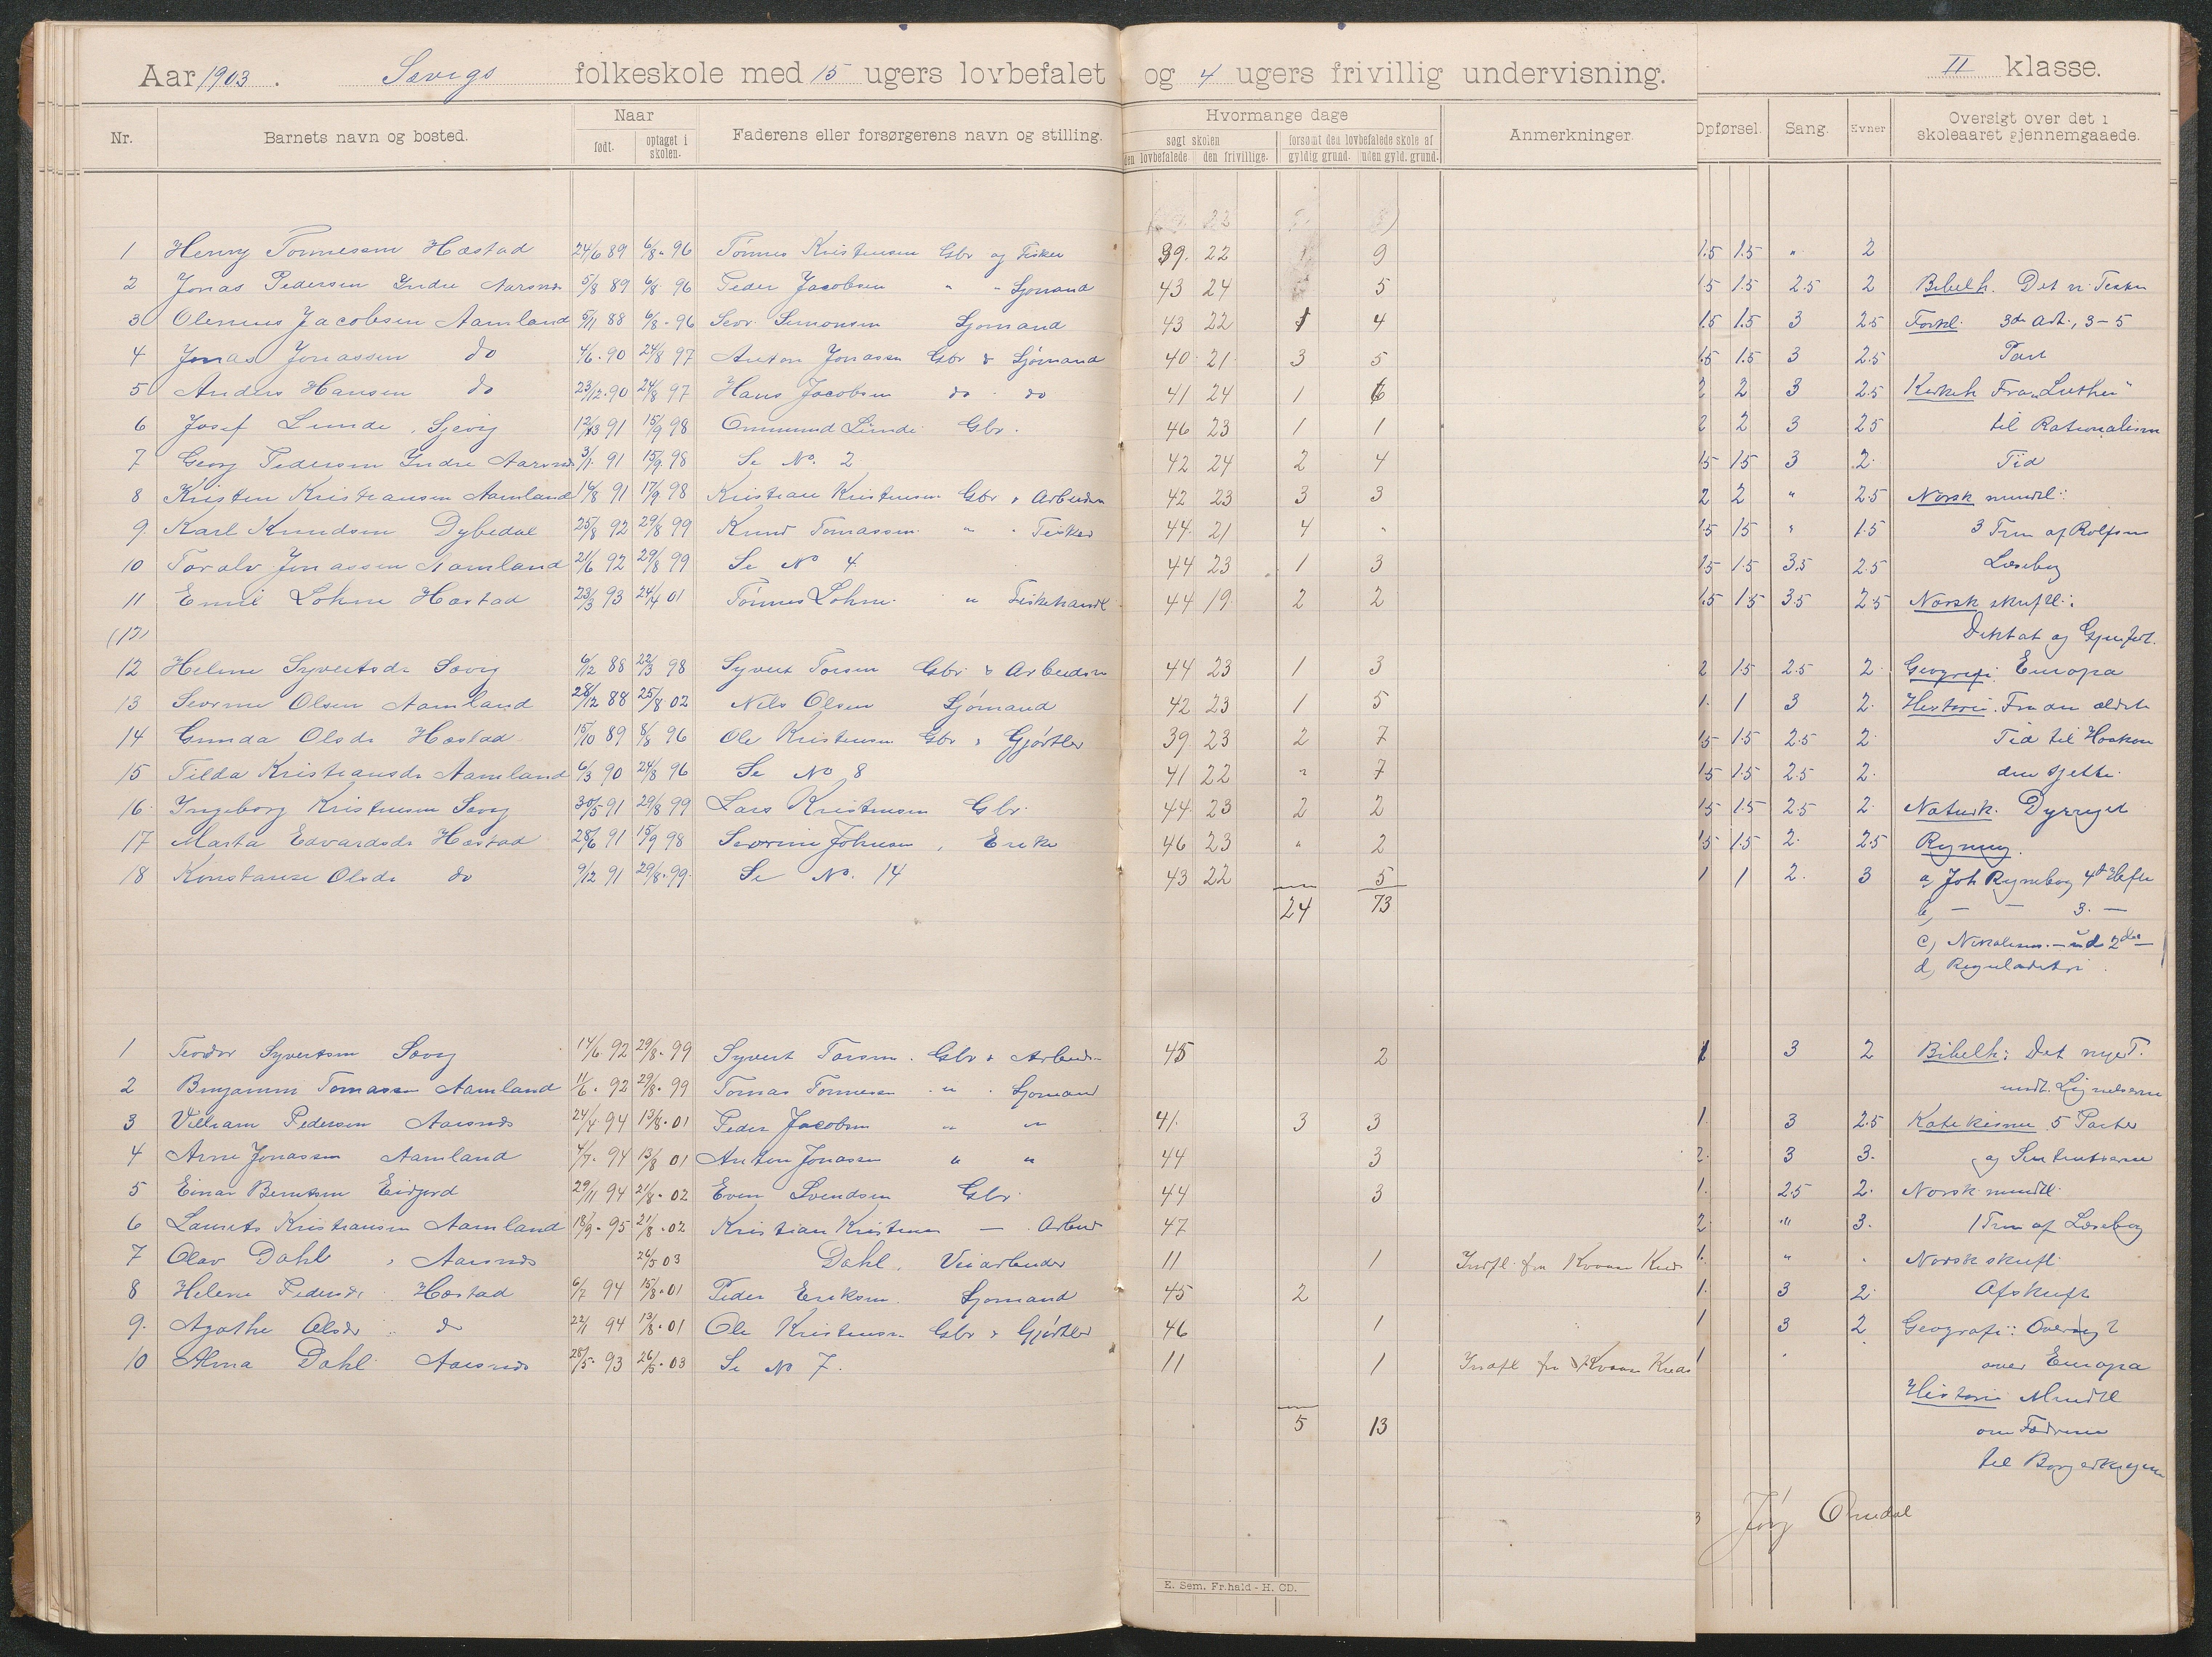 Aar 1903. Sævigs folkeskole med 15 ugers lovbefalet og 4 ugers frivillig undervisning. II klasse.
Nr. Barnets navn og bosted. Naar født. optaget i skolen. Faderens eller forsørgerens navn og stilling. Hvormange dage søgt skolen den lovbefalede. den frivillige. forsømt den lovbefalede skole af gyldig grund. uden gyld. grund. Anmerkninger. Opførsel. Sang. Evner Oversigt over det i skoleaaret gjennemgaaede.
1 Henry Tønnesen Hæstad 24/6 89 6/8 96 Tønnes Kristensen Gbr og Fisker 39 22 1 9 1.5 1.5 " 2
2 Jonas Pedersen Indre Aarsnes 5/8 89 6/8 96 Peder Jacobsen " " Sjømand 43 24 5 1.5 1.5 2.5 2 Bibelh. Det n. Testm
3 Olenius Jacobsen Aamland 5/11 88 6/8 96 Sevr. Simonsen Sjømand 43 22 1 4 1.5 1.5 3 2.5 Forkl. 3die Art., 3-5
4 Jonas Jonassen do 4/6 90 24/8 97 Anton Jonassen Gbr & Sjømand 40 21 3 5 1.5 1.5 3 2.5 Part
5 Anders Hansen do 23/12 90 24/8 97 Hans Jacobsen do do 41 24 1 6 2 2 3 2.5 Kirkeh Fra "Luther"
6 Josef Lunde, Sjevig 91 15/9 98 Ommund Lunde Gbr. 46 23 1 1 2 2 3 2.5 til Rationalism
7 Georg Pedersen Indre Aarsnes 3/1 91 15/9 98 Se No. 2 42 24 2 4 1.5 1.5 3 2. Tid
8 Kristen Kristiansen Aamland 14/8 91 17/9 98 Kristian Kristensen Gbr & Arbeider 42 23 3 3 2 2 " 2.5 Norsk mundtl:
9. Karl Knudsen Dybedal 25/8 92 29/8 99 Knud Tomassen " " Fisker 44 21 4 " 1.5 1.5 " 1.5 3 Trin af Rolfsen
10 Toralv Jonassen Aamland 21/6 92 29/8 99 Se No 4 44 23 1 3 1.5 1.5 3.5 2.5 Læsebog
11 Emil Lohne Hæstad 23/3 93 24/4 01 Tønnes Lohne " Fiskehandl 44 19 2 2 1.5 1.5 3.5 2.5 Norsk skriftl:
(12) Diktat og Gjenfort.
12 Helene Syvertsdr Sævig 6/12 88 22/3 98 Syvert Torsen Gbr & Arbeidsm 44 23 1 3 2 1.5 2.5 2. Geografi Europa
13 Severine Olsen Aamland 28/12 88 25/8 02 Nils Olsen Sjømand 42 23 1 5 1 1 3 2. Historie. Fra den ældste
14 Gunda Olsdr Hæstad 15/10 89 8/8 96 Ole Kristensen Gbr & Gjørtler 39 23 2 7 1.5 1.5 2.5 2. Tid til Haakon
15 Tilda Kristiansdr Aamland 6/3 90 24/8 96 Se No 8 41 22 " 7 1.5 1.5 2.5 2. den sjette
16. Ingeborg Kristensen Sævig 30/5 91 29/8 99 Lars Kristensen Gbr. 44 23 2 2 1.5 1.5 2.5 2. Naturk. Dyreriget
17 Marta Edvardsdr Hæstad 28/6 91 15/9 98 Severine Johnsen, Enke 46 23 " 2 1.5 1.5 2. 2.5 Regning.
18 Konstanse Olsdr do 9/12 91 29/8 99 Se No. 14 43 22 5 1 1 2. 3 a, Joh Regnebog 4de Hefte
24 73 b, — — 3. —
c, Nikolaisen — 2det —
d, Reguladetri.
1 Teodor Syvertsen Sævig 14/6 92 29/8 99 Syvert Torsen. Gbr & Arbeids 45 2 1 3 2 Bibelh: Det nye T.
2 Benjamin Tomassen Aamland 11/6 92 29/8 99 Tomas Tønnesen " " Sjømand undt. Lignelserne
3 Villiam Pedersen Aarsnes 24/4 94 13/8 01 Peder Jacobsen " " 41. 3 3 1. 3 2.5 Katekisme 5 Parter
4 Arne Jonassen Aamland 4/7 94 13/8 01 Anton Jonassen " " 44 3 2. 3 3. og Sententserne
5 Einar Berntsen Eidfjord 29/11 94 21/8 02 Even Svendsen Gbr. 44 3 1. 2.5 2. Norsk mundtl.
6 Laurits Kristiansen Aamland 18/9 95 21/8 02 Kristian Kristensen — Arbeid 47 2. " 3. 1 Trin af Læsebog
7 Olav Dahl, Aarsnes 26/5 03 Dahl, Veiarbeider 11 1 Indfl. fra Kvaas Kreds 1. " . Norsk skriftl.
8 Helene Pedersdr Hæstad 6/7 94 15/8 01 Peder Eriksen Sjømand 45 2 1. 3 2. Afskrift
9. Agathe Olsdr do 22/11 94 13/8 01 Ole Kristensen Gbr & Gjørtler 46 1 1 3 2 Geografi: Oversigt
10 Alma Dahl Aarsnes 28/5 93 26/5 03 Se No 7. 11 1 Indfl fra Kvaas Kreds 1 over Europa
Historie Mundtl
5 13 om Fædrene
til Borgerkrigene
Jørg Omdal
E. Sem, Fr.hald - H. CD.